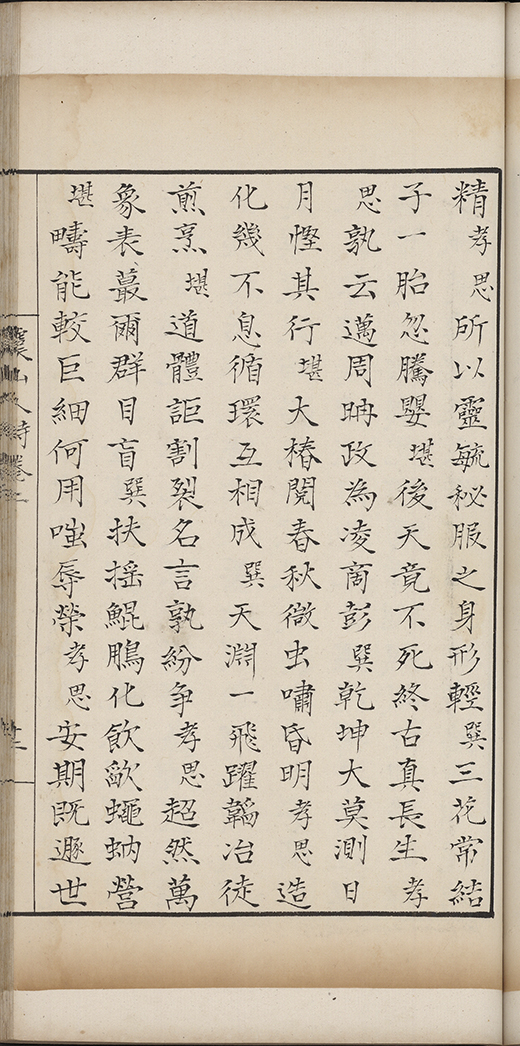 精孝思所以靈毓秘服之身形輕巽三花常結
子一胎忽騰嬰堪後天竟不死終古真長生孝
思孰云邁周冉政為凌商彭巽乾坤大莫測日
月慳其行堪大椿閱春秋微虫嘯昏明孝思造
化幾不息循環互相成巽天淵一飛躍韜冶徒
煎烹堪道體詎割裂名言孰紛争孝思超然萬
象表蕞爾群目盲巽扶摇鯤鵬化飲歃蠅蚋營
堪疇能較巨細何用嗤辱榮孝思安期既遯世
山人詩卷之